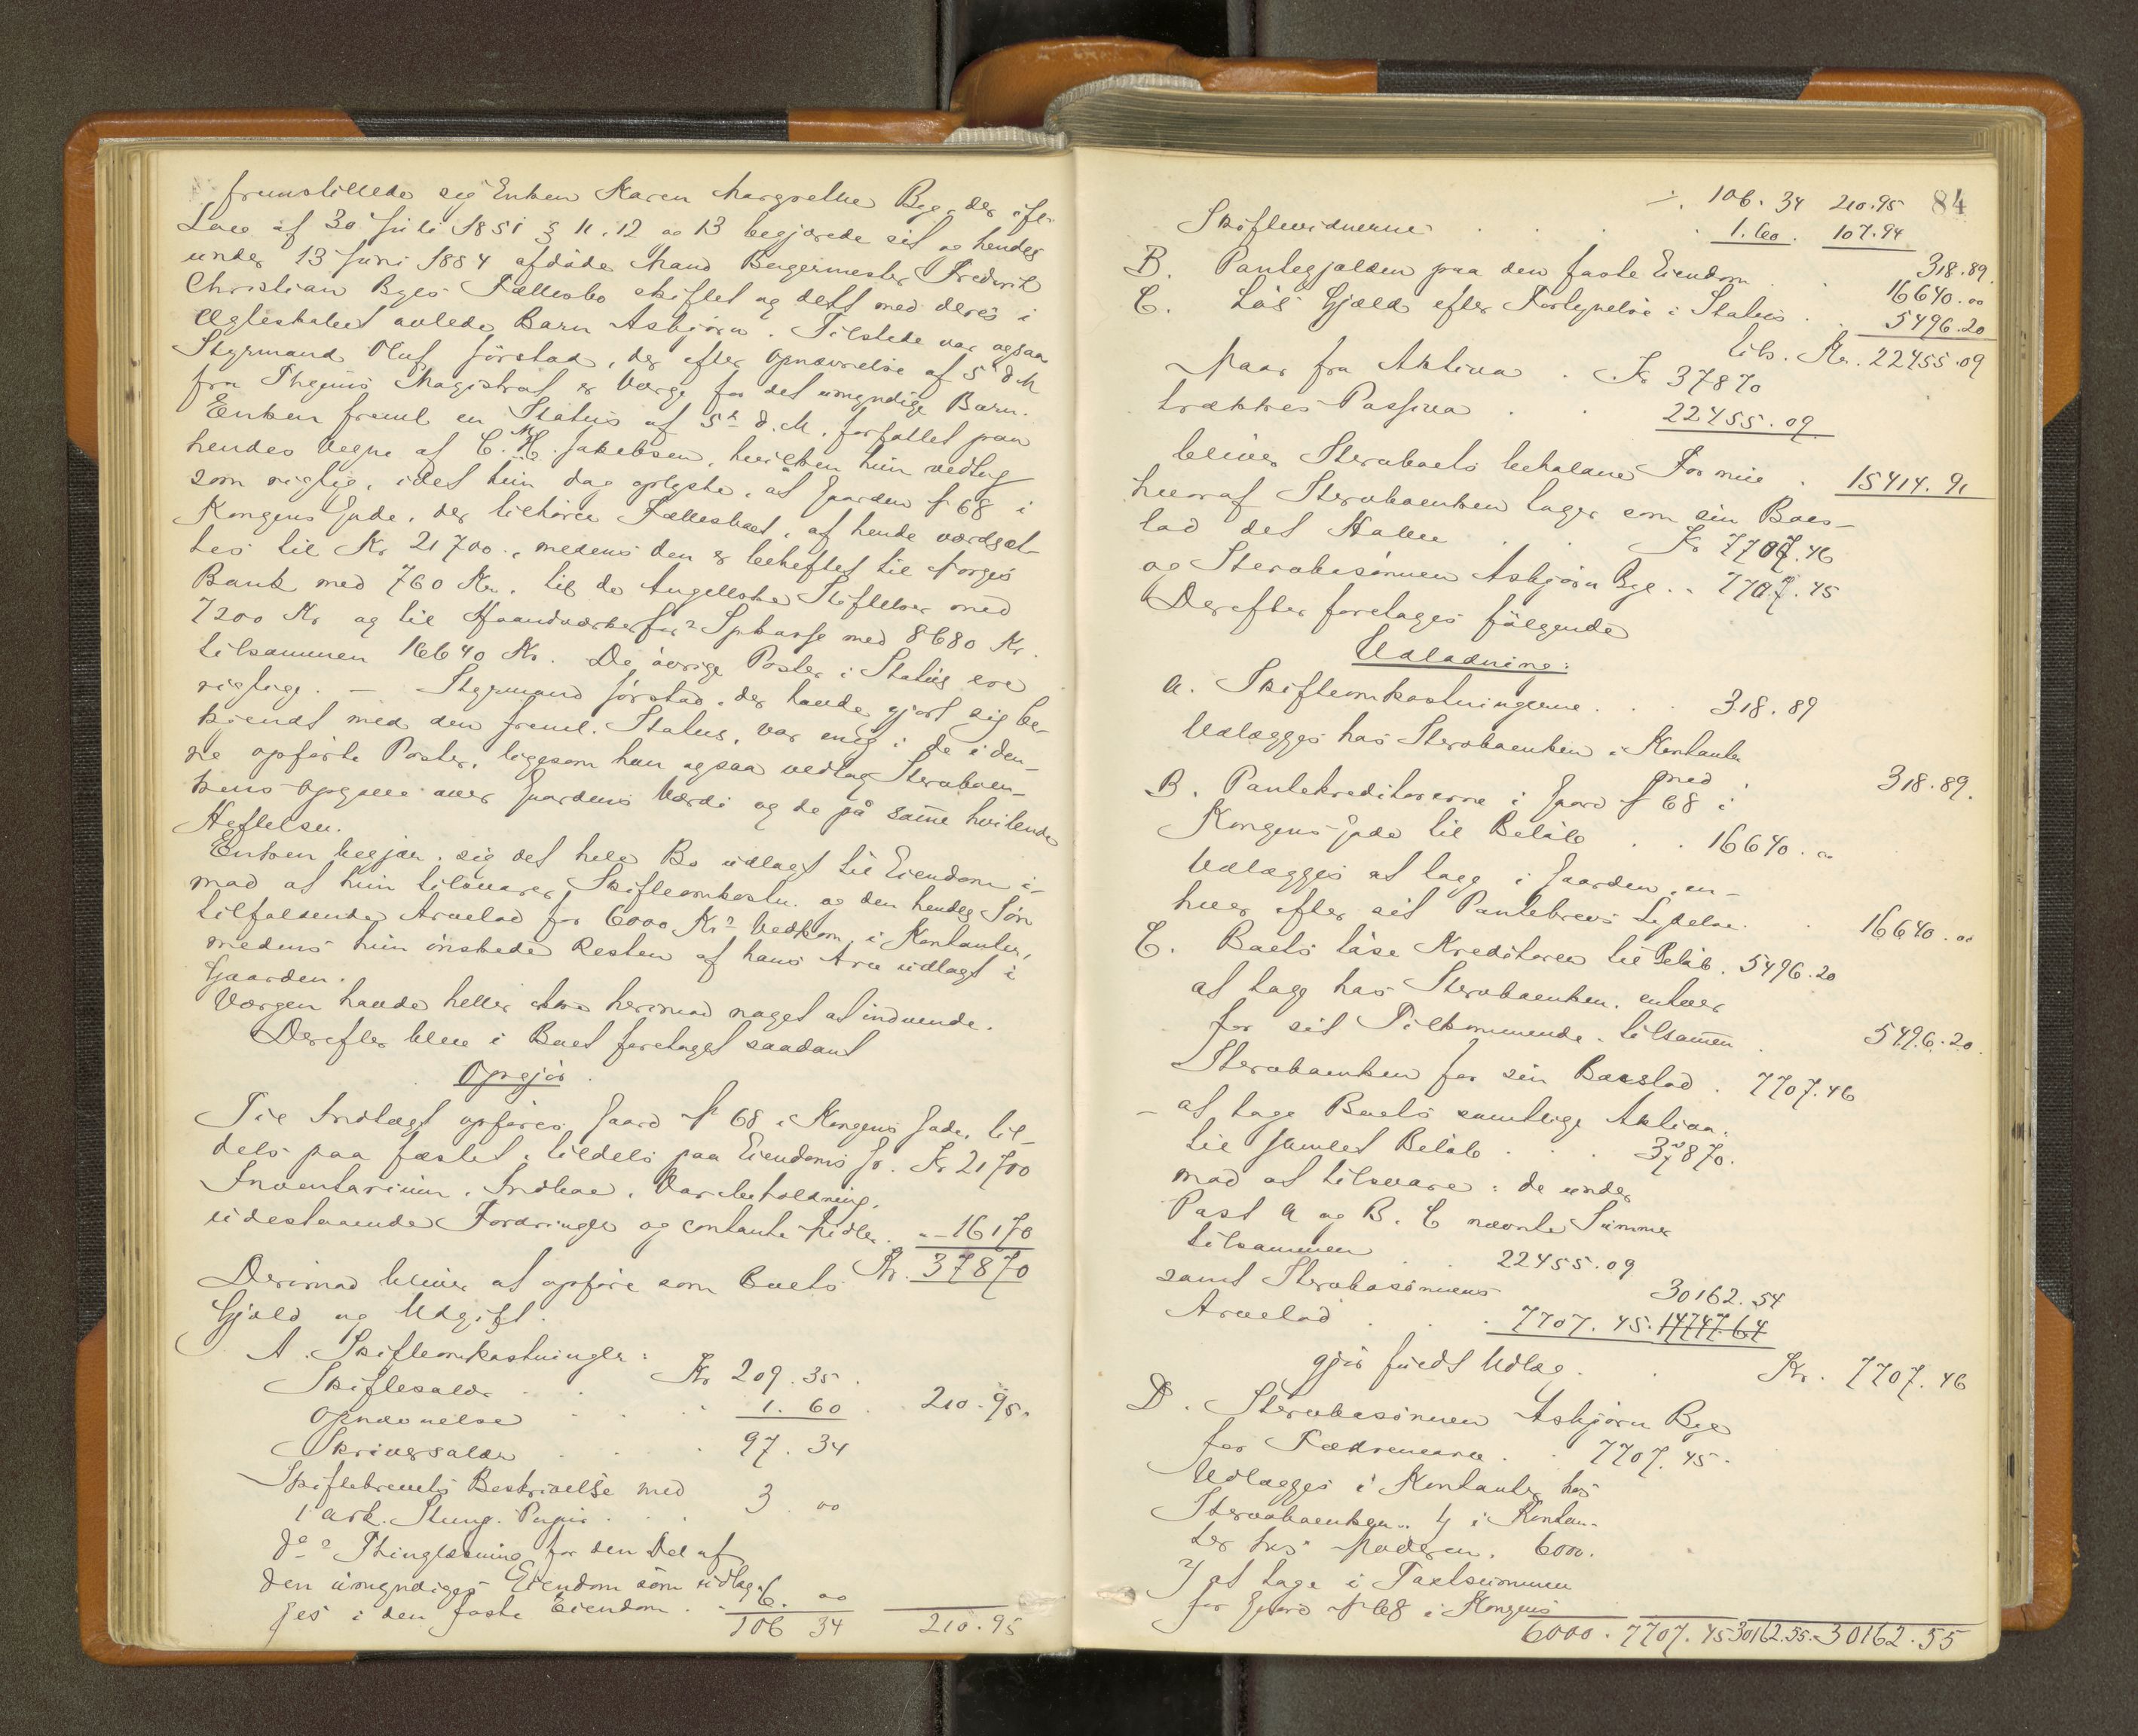 fremstillede sig Enken Karen Margrethe Bye, der ifl.
Lov af 30 Juli 1851 § 11, 12 og 13 begjærede sit og hendes
under 13 Juni 1884 afdøde Mand Bagermester Fredrik
Christian Byes Fællesbo skiftet og delt med deres i
Ægteskabet avlede Barn Asbjørn. Tilstede var ogsaa
Styrmand Oluf Jørstad, der efter Opnævnelse af 5 d M
fra Thejms Magistrat er Værge for det umyndige Barn.
Enken freml en Status af 5te d. M. forfattet paa
hendes Vegne af C. M. Jakobsen, hvilken hun vedtog
som rigtig, idet hun dog oplyste, at Gaarden N 68 i
Kongens Gade, der tilhører Fællesboet, af hende værdsæt-
tes til Kr 21700., medens den er beheftet til Norges
Bank med 760 Kr. til de Angellske Stiftelser med
7200 Kr og til Haandværkerfor Spkasse med 8680 Kr.
tilsammen 16640 Kr. De øvrige Poster i Status ere
rigtige. – Styrmand Jørstad, der havde gjort sig be-
kjendt med den freml. Status, var enig i de i den-
ne opførte Poster, ligesom han ogsaa vedtog Stervboen-
kens Opgave over Gaardens Værdi og de på samme hvilende
Heftelser.
Enken begjær. sig det hele Bo udlagt til Eiendom i-
mod at hun tilsvarer Skifteomkostn. og den hendes Søn
tilfaldende Arvelod for 6000 Krs Vedkom. i Kontanter,
medens hun ønskede Resten af hans Arv udlagt i
Gaarden.
Værgen havde heller ikke herimod noget at indvende.
Derefter blev i Boet foretaget saadant
Opgjør.
Til Indtægt opføres Gaard N 68 i Kongens Gade, til-
dels paa fæstet, tildels paa Eiendoms Gr. Kr 21700
Inventarium, Indboe, Varebeholdning,
udestaaende Fordringer og contante Midler . „–16170
Kr. 37870
Derimod bliver at opføre som Boets
Gjæld og Udgift.
A. Skifteomkostninger:
Skiftesalær . . Kr 209.35.
Opnævnelse . . . 1.60 . 210.95.
Skriversalær . . . 97.34
Skiftebrevets Beskrivelse med
1 Ark. Stemp. Papir . . . 3.00
Do's Thinglæsning for den Del af
den umyndiges Eiendom som udlæg-
ges i den faste Eiendom . . 6.00
106 34 210.95
84
÷. 106.34 210.95
Skiftevidnerne . . . . 1.60. 107.94
318.89.
B. Pantegjælden paa den faste Eiendom . . 16640.00
C. Løs Gjæld efter Fortegnelse i Status . . 5496.20
tils. Kr. 22455.09
Naar fra Aktiva . Kr 37870
trækkes Passiva . . 22455.09
bliver Stervboets beholdne Formue . 15414.91
hvoraf Stervboenken tager som sin Boes-
lod det Halve . . Kr 7707.46
og Stervbosønnen Asbjørn Bye . „ 7707.45
Derefter foretages følgende
Udlodning:
A. Skifteomkostningerne . . . 318.89
Udlægges hos Stervboenken i Kontanter
med 318.89.
B. Pantekreditorerne i Gaard N 68 i
Kongens Gade til Beløb . . 16640.00
Udlægges at tage i Gaarden, en-
hver efter sit Pantebrevs Lydelse . . 16640.00
C. Boets løse Kreditorer til Beløb . 5496.20
at tage hos Stervboenken, enhver
for sit Tilkommende, tilsammen . 5496.20.
Stervboenken for sin Boeslod . 7707.46
– at tage Boets samtlige Aktiva,
til samlet Beløb . . . 37870.
mod at tilsvare: de under
Post A og B. C nævnte Summer
tilsammen 22455.09
samt Stervbosønnens 30162.54
Arvelod . . . 7707.45. 14747.64
gjør fuldt Udlæg . . Kr. 7707.46
D. Stervbosønnen Asbjørn Bye
for Fædrenearv . . 7707.45.
Udlægges i Kontanter hos
Stervboenken „ 1/ i Kontan-
ter hos Moderen. 6000.
2/ at tage i Taxtsummen
for Gaard N 68 i Kongens
6000. 7707.45 30162.55. 30162.55